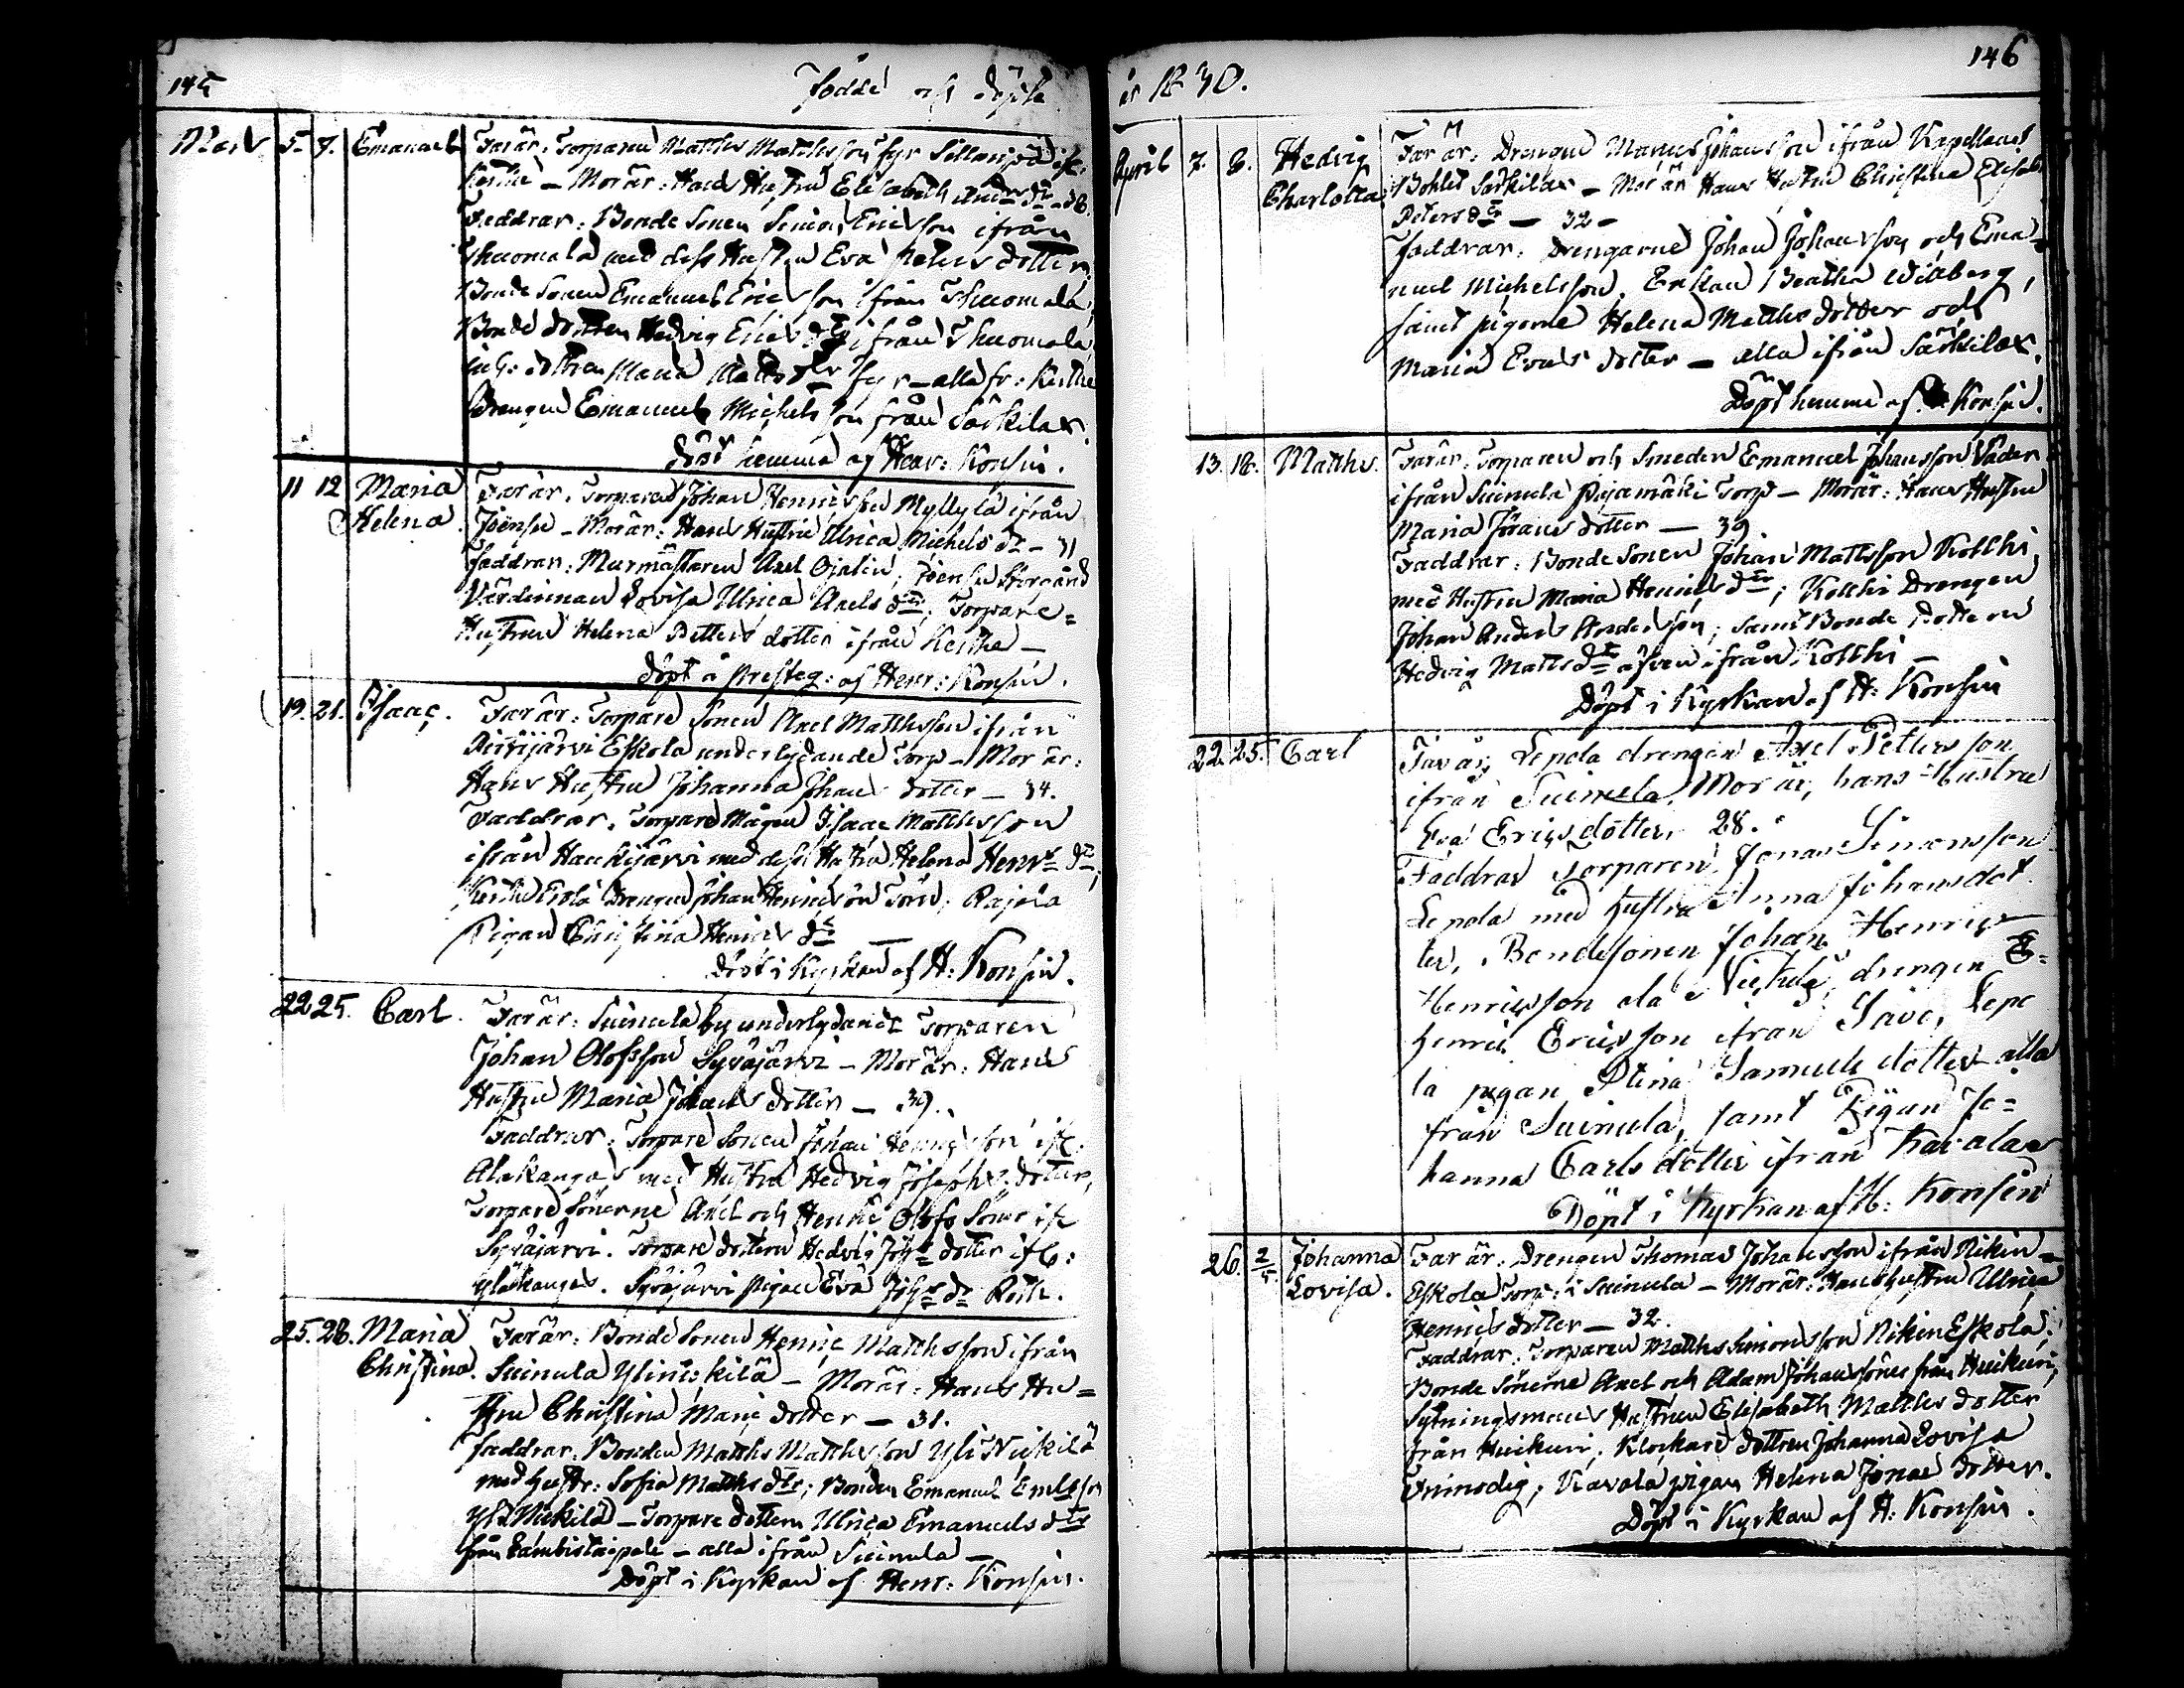 145
Födde och Döpte
Mars 5. 7. Emanuel Far är: Torparen Matths Matthsson fyr
Mor är: Hans Hustru Elisabeth
Faddrar: Bonde Sonen Simon Ericsson ifrån
med dess Hustru Eva Peters dotter,
Bonde Sonen Emanuel Ericsson ifrån
Bonde dottren Hedvig Erics dtr ifrån
Maria Matts dr fyr – alla fr:
Drengen Emanuel Michelsson från Särkilax.
döpt hemma af Henr: Konsin.
11 12 Maria Far är. Torparen Johan Henricsson Myllylä ifrån
Helena. Joensu – Mor är: Hans Hustru Ulrica Michels dr – 31
Faddrar: Murmästaren Axel Ojalin, Joensu
Värdinnan Lovisa Ulrica Axels dtr; Torpare=
Hustrun Helena Petters dotter ifrån Kerthe –
döpt å Presteg: af Henr: Konsin.
19. 21. Isaac. Far är: Torpare Sonen Axel Matthsson ifrån
Eskola underlydande Torp – Mor är:
Hans Hustru Johanna Johans dotter – 34.
Faddrar. Torpare Mågen Isaac Matthsson
ifrån Haukijärvi med dess Hustru Helena Henrs dr,
Drengen Johan Henricsson
Pigan Christina Henrics dr –
döpt i Kyrkan af H: Konsin.
22 25. Carl. Far är: Suinula by underlydande Torparen
Johan Olofsson Syväjärvi – Mor är: Hans
Hustru Maria Johans dotter – 39.
Faddrar: Torpare Sonen Johan Henricsson ifr.
Alakangas med Hustru Hedvig Josephs dotter,
Torpare Sönerne Axel och Henric Olofs Söner ifr
Syväjärvi. Torpare dottern Hedvig Johs dotter ifr:
Yläkangas. Syväjärvi pigan Eva Johs dr
25. 28. Maria Far är: Bonde Sonen Henric Matthsson ifrån
Christina. Suinula – Mor är: Hans Hu=
stru Christina Maria dotter – 31.
Faddrar. Bonden Matths Matthsson
med hustr: Sofia Matths dtr; Bonden Emanuel
– Torpare dottern Ulrica Emanuels dtr
från – alla ifrån Suinula –
Döpt i Kyrkan af Henr: Konsin.
146
år 1830.
April 7. 8. Hedvig Far är: Drengen Marcus Johansson ifrån Kapellans
Charlotta Bohlet Särkilax – Mor är Hans Hustru Christina
Peters dtr – 32 –
Faddrar: Drengarne Johan Johansson och Ema=
nuel Michelsson. Enkan Beatha Widberg,
samt pigorne Helena Matths dotter och
Maria Evas dotter – alla ifrån Särkilax.
Döpt hemma af Konsin.
13. 18. Matths. Far är. Torparen och Smeden Emanuel Johansson
ifrån Suinula Pajamäki Torp – Mor är: Hans Hustru
Maria Johans dotter – 39
Faddrar: Bonde Sonen Johan Mattsson Kolkki,
med Hustru Maria Henrics dtr; Kolkki Drengen
Johan Anders Andersson; samt Bonde Dotteren
Hedvig Matts dtr äfven ifrån Kolkki –
Döpt i Kyrkan af H: Konsin
22. 25. Carl Far är, Lepola drengen Axel Pettersson
ifrån Suinula, Mor är, hans Hustru
Eva Ericsdotter, 28.
Faddrar Torparen Jonas Simonsson
Lepola med hustru Anna Johansdot
ter, Bondesonen Johan Henric
Henricsson drengen
Henric Ericsson ifrån Lepo
la pigan Stina Samuels dotter alla
från Suinula, samt Pigan Jo=
hanna Carls dotter ifrån Kavala
Döpt i Kyrkan af H: Konsin
26. 2/5 Johanna Far är: Drengen Thomas Johansson ifrån Nikin=
Lovisa. Eskola Torp: i Suinula – Mor är: Hans hustru Ulrica
Henrics dotter – 32.
Faddrar: Torparen Matths Simonsson Nikin Eskola;
Bonde Sönerne Axel och Adam Johans söner från Huikuri;
Sytningsmans Hustrun Elisabeth Matths dotter
från Huikuri; Klockare dottren Johanna Lovisa
Frimodig; Kavala pigan Helena Jonae dotter.
Döpt i Kyrkan af H: Konsin.